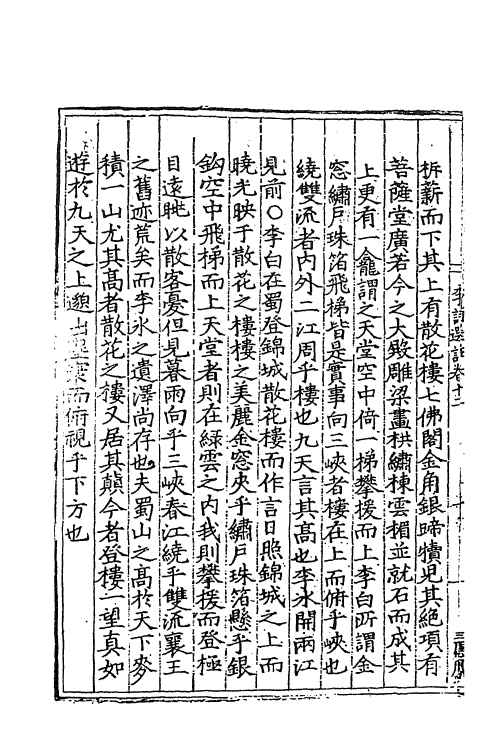 李詩選註卷十二
柝薪而下其上有散花樓七佛閣金角銀蹄犢児其絶頂有
菩薩堂廣若今之大殿雕梁畫栱繡棟雲楣並就石而成其
上更有一龕謂之天堂空中倚一梯攀援而上李白所謂金
窓繡戶珠箔飛梯皆是實事向三峽者樓在上而俯乎峽也
繞雙流者内外二江周乎樓也九天言其髙也李氷開兩江
見前〇李白在蜀登錦城散花樓而作言日照錦城之上而
曉光映于散花之樓樓之美麗金窓夾乎繡戶珠箔懸乎銀
鈎空中飛梯而上天堂者則在緑雲之内我則攀援而登極
目遠眺以散客憂但見暮雨向乎三峽春江繞乎雙流襄王
之舊迹荒矣而李氷之遺澤尚存也夫蜀山之髙於天下麥
積一山尤其髙者散花之樓又居其顛今者登樓一望真如
遊於九天之上邀而俯視乎下方也